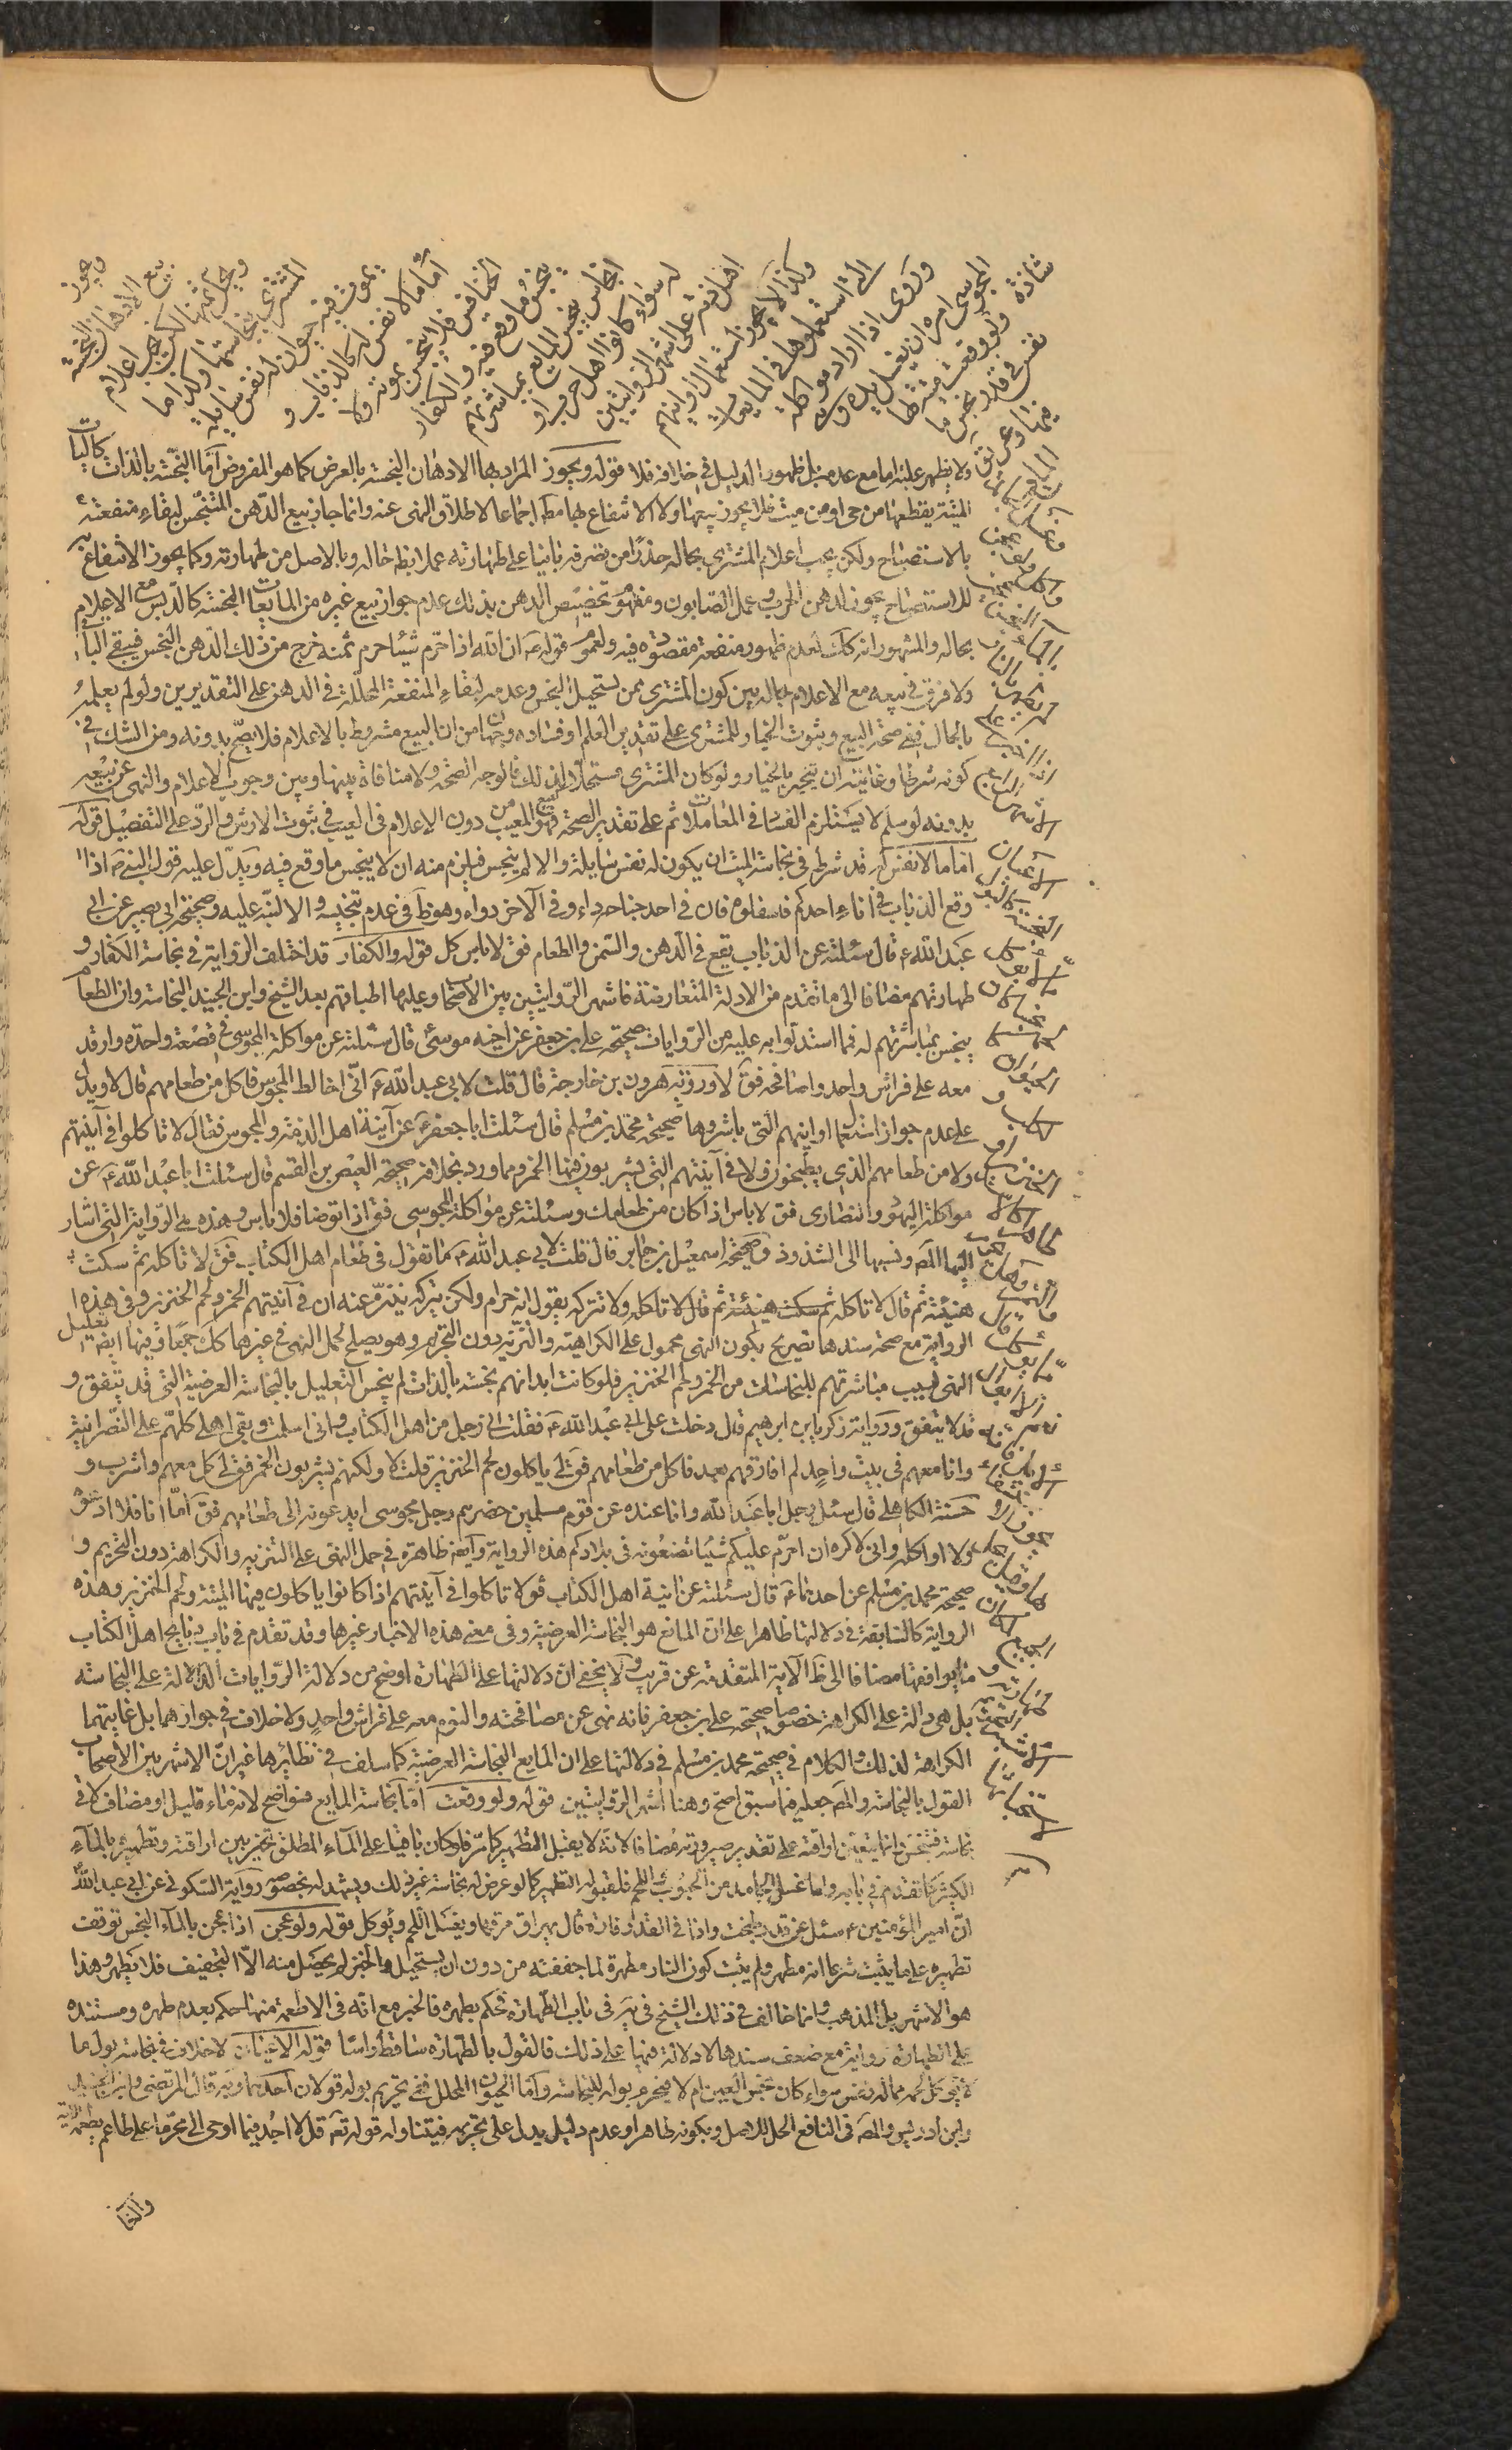 ويجوز
بيع الادهان النجسة
ويحل ثمنها لكن يجب اعلام
المشتري بنجاستها وكذا ما
يموت فيه حيوان له نفس سايلة
أما ما لا نفس له كالذباب و
الخنافس فلا ينجس بموته ولا
ينجس ما وقع فيه والكفار
انجاس ينجس المايع بمباشرتهم
له سواء كانوا اهل حرب او
اهل ذمة على اشهر الروايتين
وكذا لا يجوز استعمال اوانيهم
التي استعملوها في المايعات
وروى اذا اراد مواكلة
المجوسي امره ان يغسل يده وهي
شاذة ولو وقعت ميتة لها
نفس في قدر نجس ما
فيها وعريق
المايع
ولا يظهر علينا ما مع عدمه بل ظهور الدليل في خلافه فلا قوله ويجوز المراد بها الادهان النجسة بالعرض كما هو المفروض اما النجسة بالذات كاليات
الميتة يقطعها من حي او من ميت فلا يجوز بيعها ولا الانتفاع بها مطلقا اجماعا لاطلاق النهي عنه وانما جاز بيع الدهن المتنجس لبقاء منفعته
بالاستصباح ولكن يجب اعلام المشتري بحاله حذرا من تصرفه بانيا على طهارته عملا بظ حاله وبالاصل من طهارته وكما يجوز الانتفاع به
للاستصباح يجوز لدهن الجرب وعمل الصابون ومفهوم تخصيص الدهن بذلك عدم جواز بيع غيره من المايعات النجسة كالدبس مع الاعلام
بحاله والمشهور انه كك لعدم ظهور منفعة مقصودة فيه ولعموم قوله ص ان الله اذا حرم شيئا حرم ثمنه خرج من ذلك الدهن النجس فيبقى الباقي
ولا فرق في بيعه مع الاعلام بحاله بين كون المشتري ممن يستحيل النجس وعدمه لبقاء المنفعة المحللة في الدهن على التقديرين ولو لم يعلمه
بالحال ففي صحة البيع وثبوت الخيار للمشتري على تقدير العلم او فساده وجهان من ان البيع مشروط بالاعلام فلا يصح بدونه ومن الشك في
كونه شرطا وغايته ان ينجبر بالخيار ولو كان المشتري مستحلا لذلك فالوجه الصحة ولا منافاة بينها وبين وجوب الاعلام والنهي عن بيعه
بدونه لو سلم لا يستلزم الفساد في المعاملات ثم على تقدير الصحة فهو كبيع المعيب من دون الاعلام في العيب في ثبوت الارش والرد على التفصيل قوله
اما ما لا نفس له قد شرط في نجاسة الميت ان يكون له نفس سايلة والا لم ينجس فيلزم منه ان لا ينجس ما وقع فيه ويدل عليه قول النبي ص اذا
وقع الذباب في اناء احدكم فامقلوه فان في احد جناحه داء وفي الآخر دواء وهو ظ في عدم تنجيسه والا لنبه عليه وصحيحة ابي بصير عن ابي
عبد الله ع قال سئلته عن الذباب يقع في الدهن والسمن والطعام فق لا باس كل قوله والكفار قد اختلف الرواية في نجاسة الكفار و
طهارتهم مضافا الى ما تقدم من الادلة المتعارضة فاشهر الروايتين بين الاصحاب وعليها اطباقهم بعد الشيخ وابن الجنيد النجاسة وان الطعام
ينجس بمباشرتهم له فما استدلوا به عليه من الروايات صحيحة علي بن جعفر عن اخيه موسى قال سئلته عن مواكلة المجوسي في قصعة واحدة وارقد
معه على فراش واحد واصافحه فق لا ورواية هرون بن خارجة قال قلت لابي عبد الله ع اني اخالط المجوس فاكل من طعامهم قال لا ويدل
على عدم جواز استعمال اوانيهم التي باشروها صحيحة محمد بن مسلم قال سئلت ابا جعفر ع عن آنية اهل الذمة والمجوس فقال لا تاكلوا في آنيتهم
ولا من طعامهم الذي يطبخون ولا في آنيتهم التي يشربون فيها الخمر ومما ورد بخلافه صحيحة العيص بن القسم قال سئلت ابا عبد الله ع عن
مواكلة اليهود والنصارى فق لا باس اذا كان من طعامك وسئلته عن مواكلة المجوسي فق اذا توضا فلا باس وهذه هي الرواية التي اشار
اليها المص ونسبها الى الشذوذ وصحيحة اسمعيل بن جابر قال قلت لابي عبد الله ع ما تقول في طعام اهل الكتاب فق لا تاكله ثم سكت
هنيئة ثم قال لا تاكله ثم سكت هنيئة ثم قال لا تاكله ولا تتركه يقول انه حرام ولكن تتركه تنزه عنه ان في آنيتهم الخمر ولحم الخنزير وفي هذه
الرواية مع صحة سندها تصريح بكون النهي محمول على الكراهة والتنزيه دون التحريم وهو يصلح لحمل النهي في غيرها كك جمعا وفيها ايضا تعليل
النهي بسبب مباشرتهم للنجاسات من الخمر ولحم الخنزير فلو كانت ابدانهم نجسة بالذات لم يحسن التعليل بالنجاسة العرضية التي قد يتفق و
قد لا يتفق ورواية زكريا بن ابرهيم قال دخلت على ابي عبد الله ع فقلت اني رجل من اهل الكتاب واني اسلمت وبقي اهلي كلهم على النصرانية
وانا معهم في بيت واحد لم افارقهم بعد فاكل من طعامهم فق لي ياكلون لحم الخنزير قلت لا ولكنهم يشربون الخمر فق لي كل معهم واشرب و
حسنة الكاهلي قال سئل رجل ابا عبد الله وانا عنده عن قوم مسلمين حضرهم رجل مجوسي ايدعونه الى طعامهم فق اما انا فلا ادعوه
ولا اواكله واني لاكره ان احرم عليكم شيئا تصنعونه في بلادكم هذه الرواية وايضا ظاهرة في حمل النهي على التنزيه والكراهة دون التحريم و
صحيحة محمد بن مسلم عن احدهما ع قال سئلته عن آنية اهل الكتاب فق لا تاكلوا في آنيتهم اذا كانوا ياكلون فيها الميتة ولحم الخنزير وهذه
الرواية كالسابقة في دلالتها ظاهرا على ان المانع هو النجاسة العرضية وفي معنى هذه الاخبار غيرها وقد تقدم في باب ذبايح اهل الكتاب
ما يوافقها مضافا الى ظ الآية المتقدمة عن قريب ولا يخفى ان دلالتها على الطهارة اوضح من دلالة الروايات الدالة على النجاسة
بل هي دالة على الكراهة خصوصا صحيحة علي بن جعفر فانه نهى عن مصافحته والنوم معه على فراش واحد ولا خلاف في جوازهما بل غايتهما
الكراهة لذلك والكلام في صحيحة محمد بن مسلم في دلالتها على ان المانع النجاسة العرضية كما سلف في نظائرها غير ان الاشهر بين الاصحاب
القول بالنجاسة والمص جعله فيما سبق اصح وهنا اشهر الروايتين قوله ولو وقعت اما نجاسة المايع فواضح لانه ماء قليل او مضاف لاقى
نجاسة فتنجس وانما يتعين اراقته على تقدير صيرورته مضافا لانه لا يقبل التطهير كما مر فلو كان باقيا على الماء المطلق تخير بين اراقته وتطهيره بالماء
الكثير كما تقدم في بابه واما غسل الجامد من الحبوب واللحم فلقبوله التطهير كما لو عرض له نجاسة غير ذلك ويشهد له بخصوصه رواية السكوني عن ابي عبد الله
ان امير المؤمنين ع سئل عن قدر طبخت واذا في القدر فارة قال يهراق مرقها ويغسل اللحم ويؤكل قوله ولو عجن اذا عجن بالماء النجس توقف
تطهيره على ما يثبت شرعا انه مطهر ولم يثبت كون النار مطهرة لما جففته من دون ان يستحيل والخبز لم يحصل منه الا التجفيف فلا يطهر وهذا
هو الاشهر بل المذهب وانما خالف في ذلك الشيخ في يه في باب الطهارة فحكم بطهره فالخبز مع انه في الاطعمة منها حكم بعدم طهره ومستنده
على الطهارة رواية مع ضعف سندها لا دلالة فيها على ذلك فالقول بالطهارة ساقط راسا قوله الاعيان لا خلاف في نجاسة بول ما
لا يؤكل لحمه مما له نفس سواء كان نجس العين ام لا فيحرم بوله للنجاسة واما الحيوان المحلل ففي تحريم بوله قولان احدهما وبه قال المرتضى وابن الجنيد
وابن ادريس والمص في النافع الحل للاصل وبكونه طاهرا وعدم دليل يدل على تحريمه فيتناوله قوله تعه قل لا اجد فيما اوحى الي محرما على طاعم يطعمه الآية